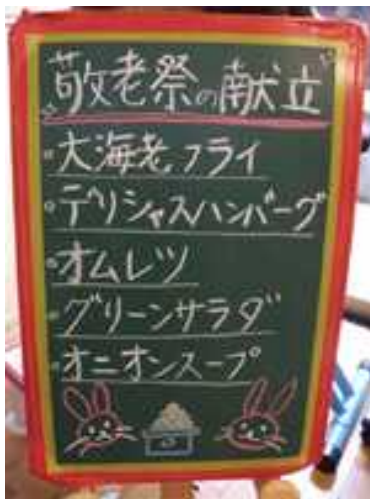 敬老祭の献立
・大海老フライ
・デリシャスハンバーグ
・オムレツ
・グリーンサラダ
・オニオンスープ